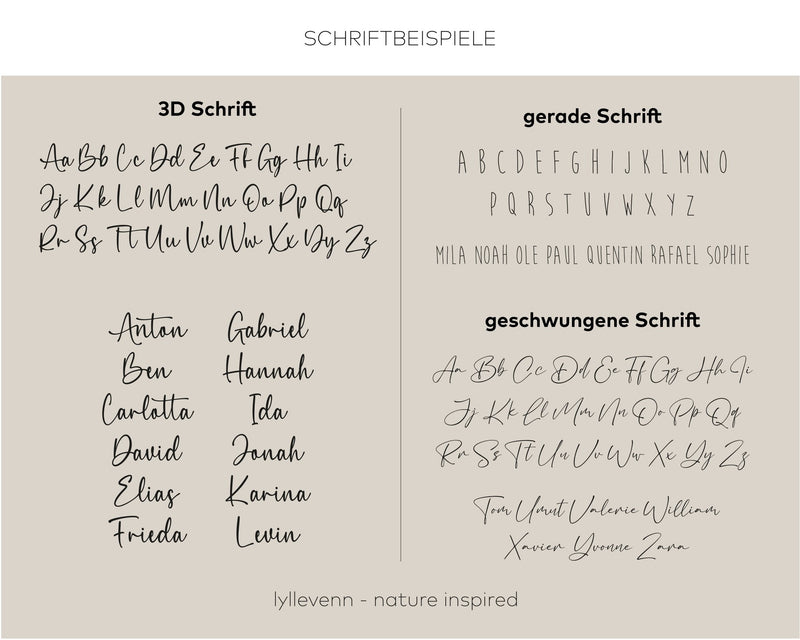 SCHRIFTBEISPIELE
3D Schrift
Aa Bb Cc Dd Ee Ff Gg Hh Ii
Jj Kk Ll Mm Nn Oo Pp Qq
Rr Ss Tt Uu Vv Ww Xx Yy Zz
Anton Gabriel
Ben Hannah
Carlotta Ida
David Jonah
Elias Karina
Frieda Levin
gerade Schrift
A B C D E F G H I J K L M N O
P Q R S T U V W X Y Z
MILA NOAH OLE PAUL QUENTIN RAFAEL SOPHIE
geschwungene Schrift
Aa Bb Cc Dd Ee Ff Gg Hh Ii
Jj Kk Ll Mm Nn Oo Pp Qq
Rr Ss Tt Uu Vv Ww Xx Yy Zz
Tom Umut Valerie William
Xavier Yvonne Zara
lyllevenn - nature inspired